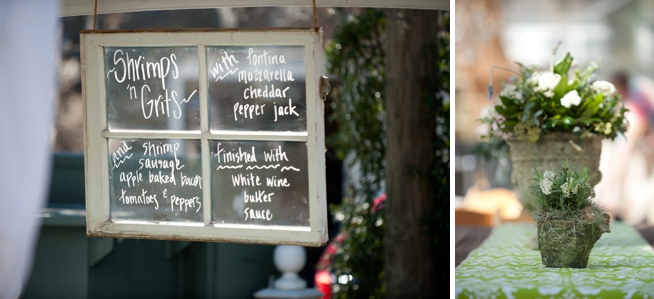 Shrimps
'n
Grits
with fontina
mozzarella
cheddar
pepper jack
and shrimp
sausage
apple baked bacon
tomatoes & peppers
finished with
white wine
butter
sauce